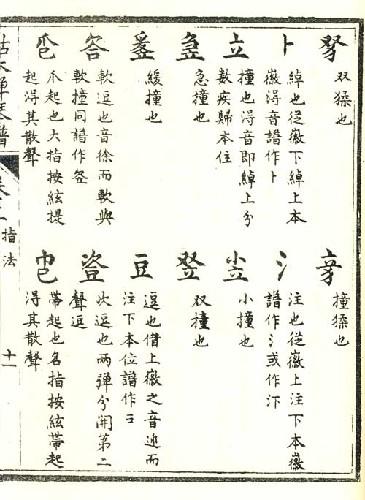 双猱也
卜
綽也從徽下綽上本
徽得音譜作卜
立
撞也得音即綽上分
數疾歸本位
急撞也
緩撞也
答
軟逗也音徐而軟與
軟撞同譜作
爪起也大指按絃提
起得其散聲
撞猱也
氵
注也從徽上注下本徽
譜作氵或作汴
小撞也
双撞也
豆
逗也借上徽之音速而
注下本位譜作
次逗也兩彈分開第二
聲逗
帶起也名指按絃帶起
得其散聲
枯木禪琴譜
指法
十一